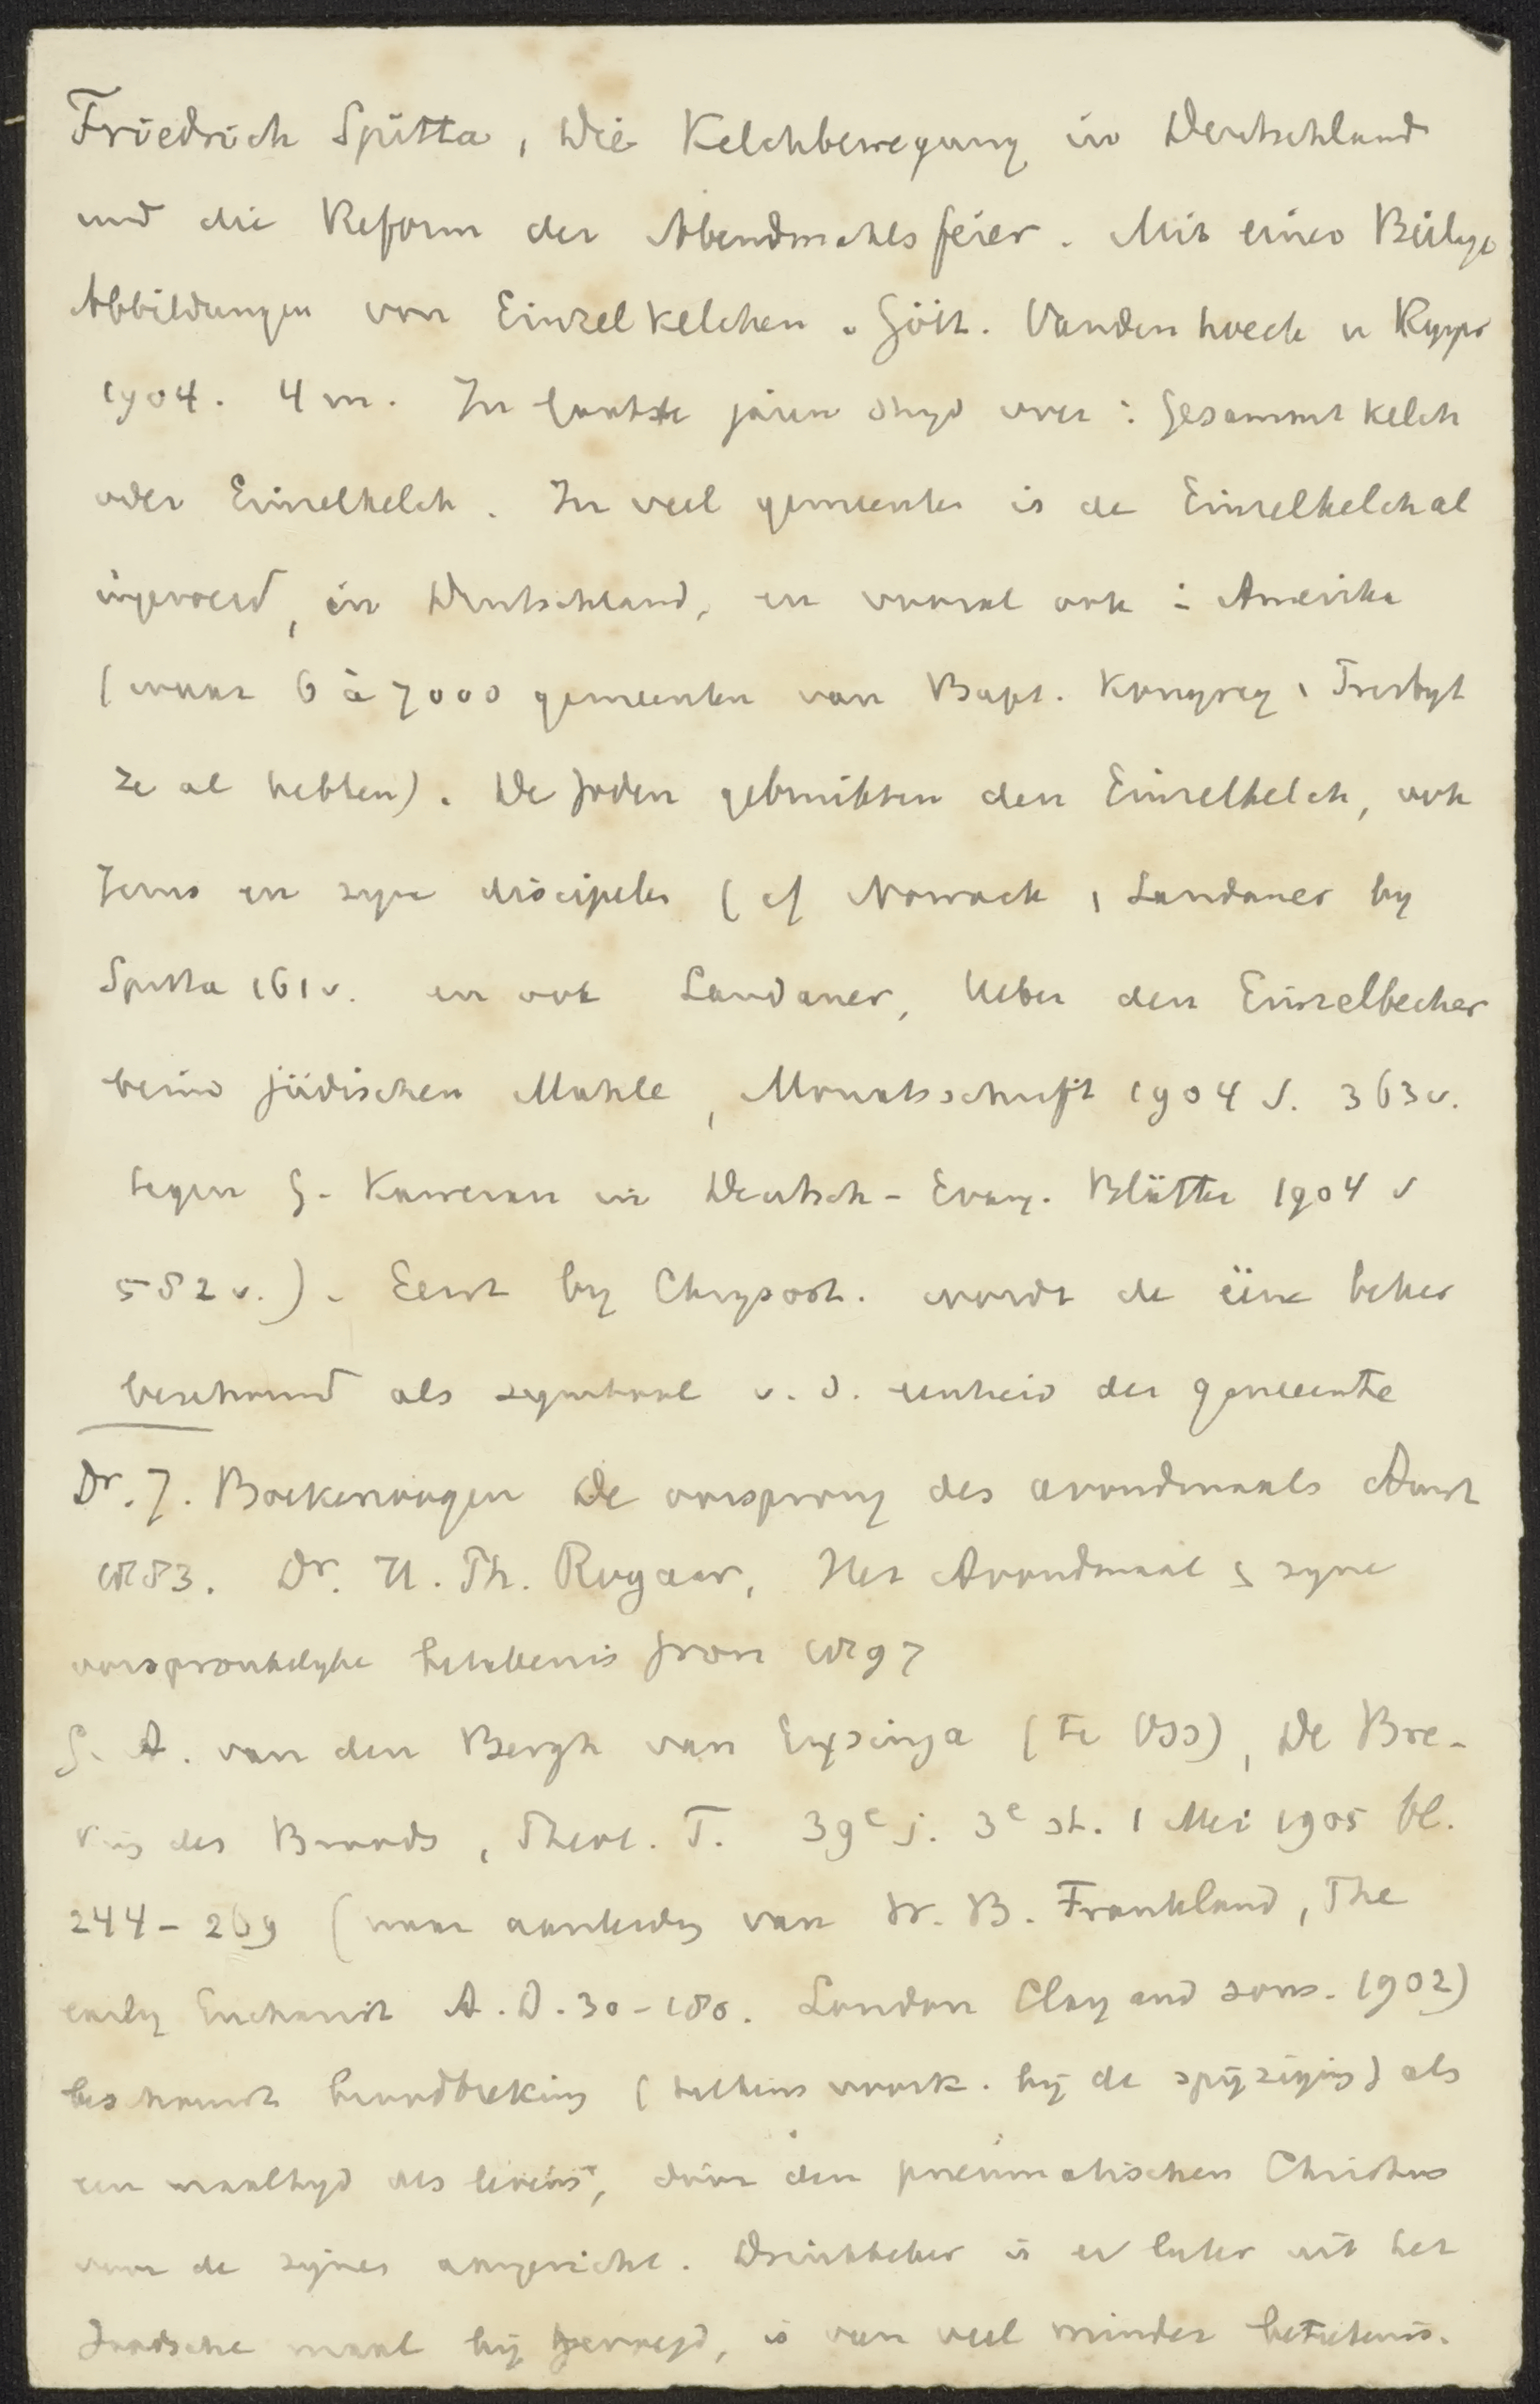 Friedrich Spitta, Die Kelchbewegung in Deutschland
und die Reform der Abendmahlsfeier. Mit einer Beilage
Abbildungen von Einzelkelchen. Gött. Vandenhoeck u
1904. 4 m. In laatste jaren stryd over: Gesammt kelch
oder Einzelkelch. In veel gemeenten is de Einzelkelch al
ingevoerd, in Deutschland, en vooral ook in Amerika
(waar 6 à 7000 gemeenten van Bapt. Kongreg, Presbyt
ze al hebben). De Joden gebruikten den Einzelkelch, ook
Jezus en zyne discipelen (cf Nowack, Landauer by
Spitta 161v. en ook Landauer, Ueber den Einzelbecher
beim jüdischen Mahle, Monatsschrift 1904 S. 363v.
tegen G. Kawerau in Deutsch-Evang. Blätter 1904 S
582v.). Eerst by Chrysost. wordt de ééne beker
beschouwd als symbool v. d. eenheid der gemeente
Dr. J. Boekenoogen De oorsprong des avondmaals Amst
1883. Dr. U. Th. Rogaar, Het Avondmaal & zyne
oorspronkelyke beteekenis Gron 1897
G. A. van den Bergh van Eysinga (te Oss), De Bre-
king des Broods, Theol. T. 39e j. 3e st. 1 Mei 1905 bl.
244-269 (naar aanleidg van W. B. Frankland, The
early Eucharist A.D. 30-180. London Clay and sons. 1902)
beschouwt broodbreking (telkens voork. bij de spijziging) als
een maaltyd des levens, door den pneumatischen Christus
voor de zijnen aangericht. Drinkbeker is er later uit het
Joodsche maal bij gevoegd, is van veel minder beteekenis.